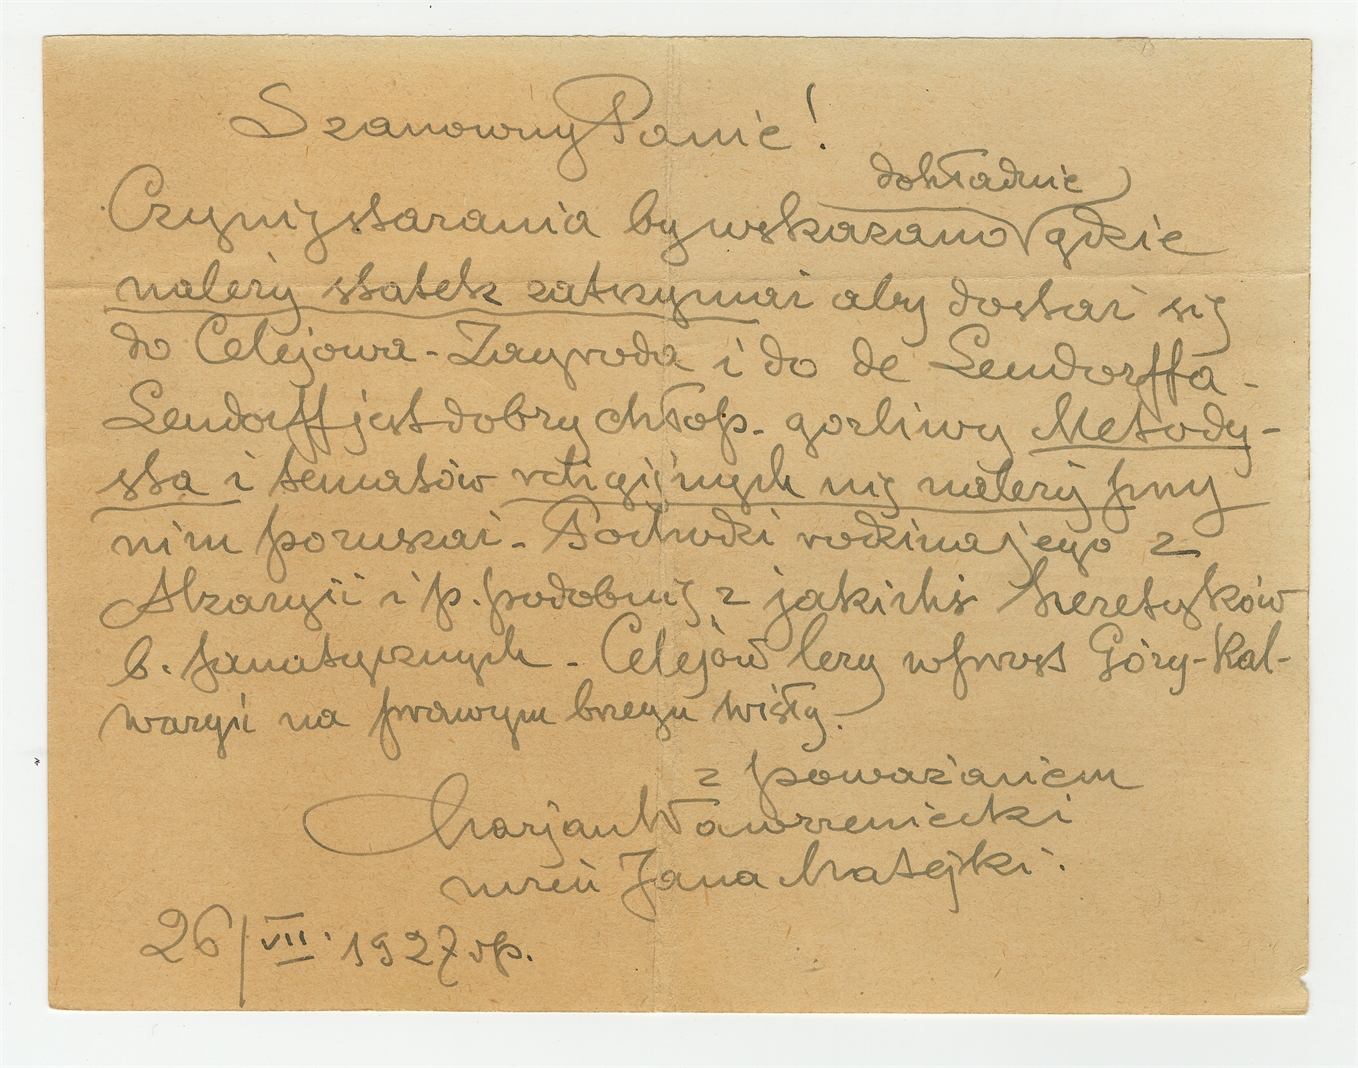 Szanowny Panie!
dokładnie
Czynię starania by wskazano gdzie
należy statek zatrzymać aby dostać się
do Celejowa-Zagroda i do de Lendorffa -
Lendorff jest dobry chłop - gorliwy Metody-
sta i tematów religijnych nie należy przy
nim poruszać - Pochodzi rodzina jego z
Alzacyi i p. podobnie z jakichś heretyków
b. fanatycznych - Celejów leży wprost Góry-Kal-
waryi na prawym brzegu Wisły -
z poważaniem
Marjan Wawrzeniecki
uczeń Jana Matejki.
26/VII. 1927 rp.